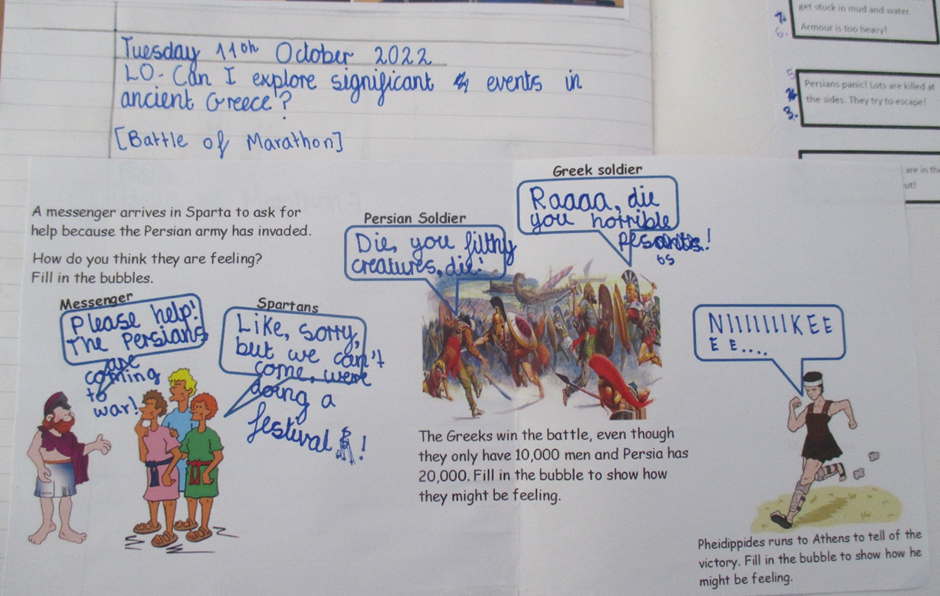 Tuesday 11th October 2022
LO- Can I explore significant events in
ancient Greece?
[Battle of Marathon]
get stuck in mud and water.
Armour is too heavy!
Persians panic! Lots are killed at
the sides. They try to escape!
are in the
A messenger arrives in Sparta to ask for
help because the Persian army has invaded.
How do you think they are feeling?
Fill in the bubbles.
Messenger
Please help!
The Persians
are
coming
to
war!
Spartans
Like, sorry,
but we can't
come, were
doing a
festival!
Persian Soldier
Die, you filthy
creatures, die!
Greek soldier
Raaaa, die
you horrible
The Greeks win the battle, even though
they only have 10,000 men and Persia has
20,000. Fill in the bubble to show how
they might be feeling.
NIIIIIIIKEE
E E....
Pheidippides runs to Athens to tell of the
victory. Fill in the bubble to show how he
might be feeling.